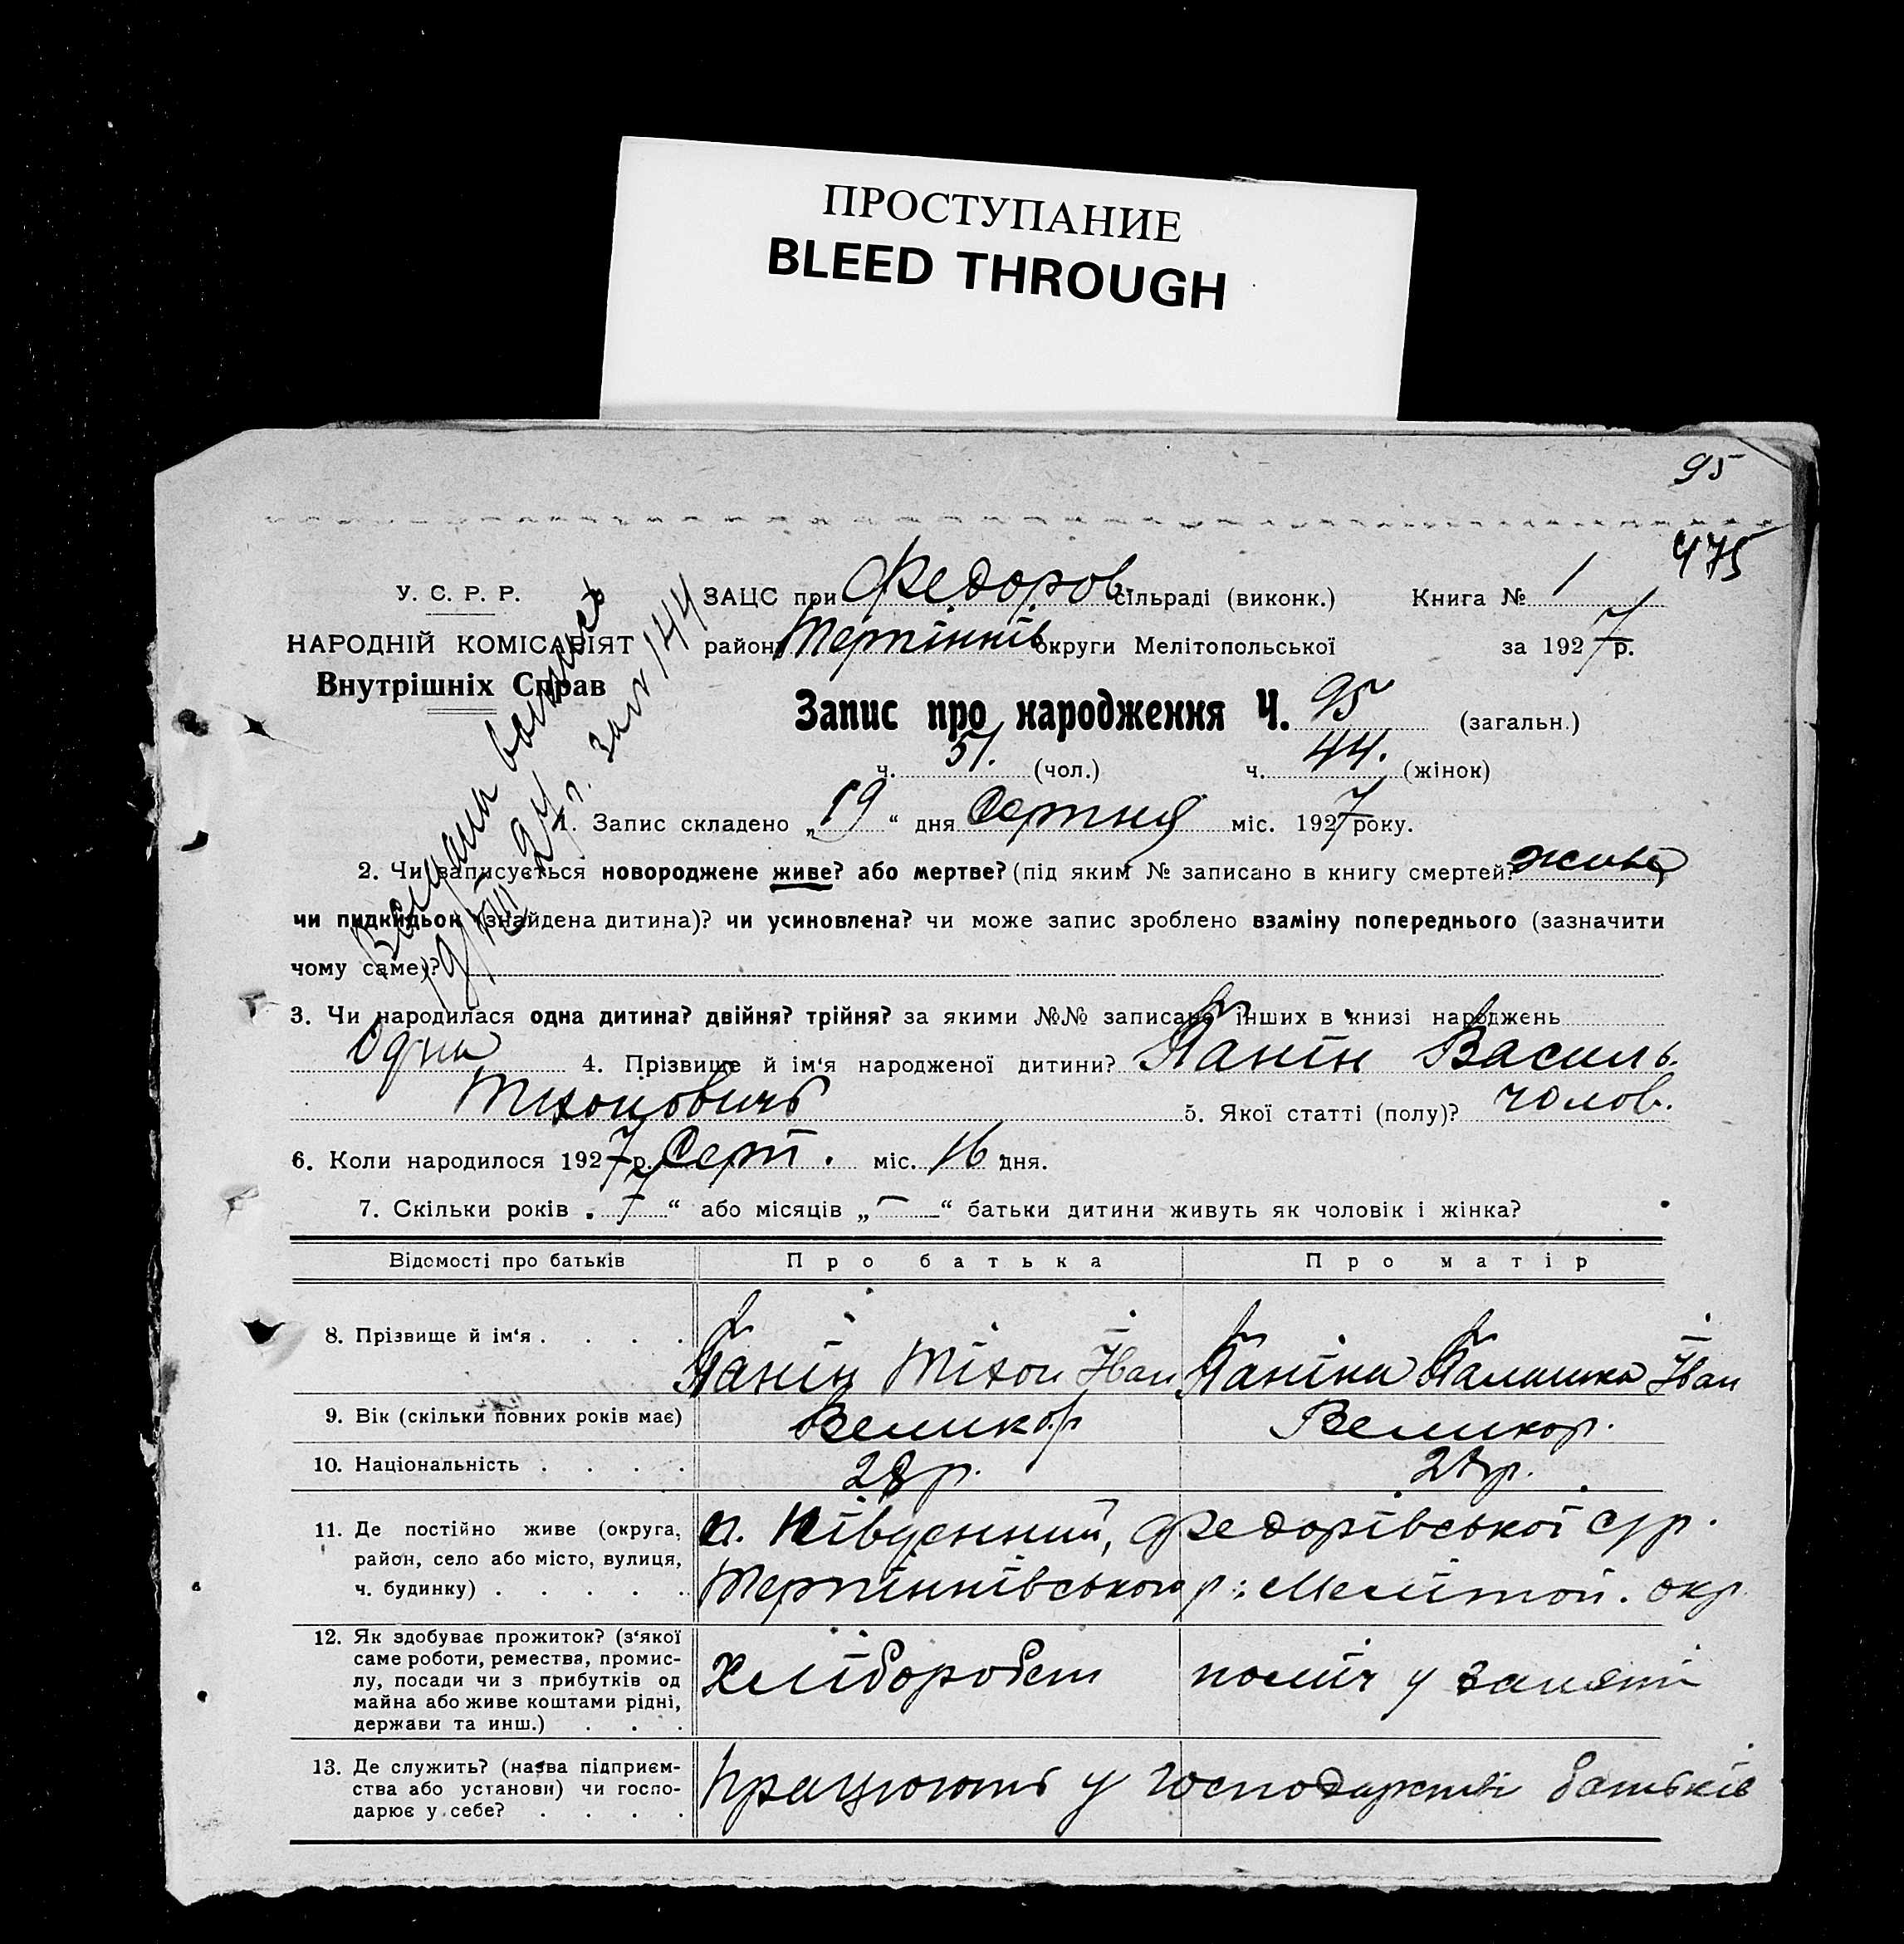 ПРОСТУПАНИЕ
BLEED THROUGH
95
475
У. С. Р. Р.
НАРОДНІЙ КОМІСАРІЯТ
Внутрішніх Справ
ЗАЦС при Федоров. сільраді (виконк.) Книга № 1
район Терпіннів округи Мелітопольської за 1927 р.
Запис про народження Ч. 95 (загальн.)
ч. 51. (чол.) ч. 44. (жінок)
1. Запис складено „19“ дня Серпня міс. 1927 року.
2. Чи записується новороджене живе? або мертве? (під яким № записано в книгу смертей? живе
чи пидкидьок (знайдена дитина)? чи усиновлена? чи може запис зроблено взаміну попереднього (зазначити
чому саме)?
3. Чи народилася одна дитина? двійня? трійня? за якими №№ записано інших в книзі народжень
Одна 4. Прізвище й ім‘я народженої дитини? Панін Василь.
Тихоновичь 5. Якої статті (полу)? чолов.
6. Коли народилося 1927 р. Серп. міс. 16 дня.
7. Скільки років „7“ або місяців „—“ батьки дитини живуть як чоловік і жінка?
Відомості про батьків Про батька Про матір
8. Прізвище й ім‘я . . . . Панін Тіхон Іван Паніна Палашка Іван
9. Вік (скільки повних років має) Великор Великор.
10. Національність . . . . 28 р. 28 р.
11. Де постійно живе (округа,
район, село або місто, вулиця,
ч. будинку) . . . . .
п. Південний, Федорівської с/р.
Терпіннівського р. Мелітоп. окр.
12. Як здобуває прожиток? (з‘якої
саме роботи, ремества, промис-
лу, посади чи з прибутків од
майна або живе коштами рідні,
держави та инш.) . . .
Хлібороб поміч у занятті
13. Де служить? (назва підприєм-
ства або установи) чи госпо-
дарює у себе? . . . .
працюють у господарстві батьків